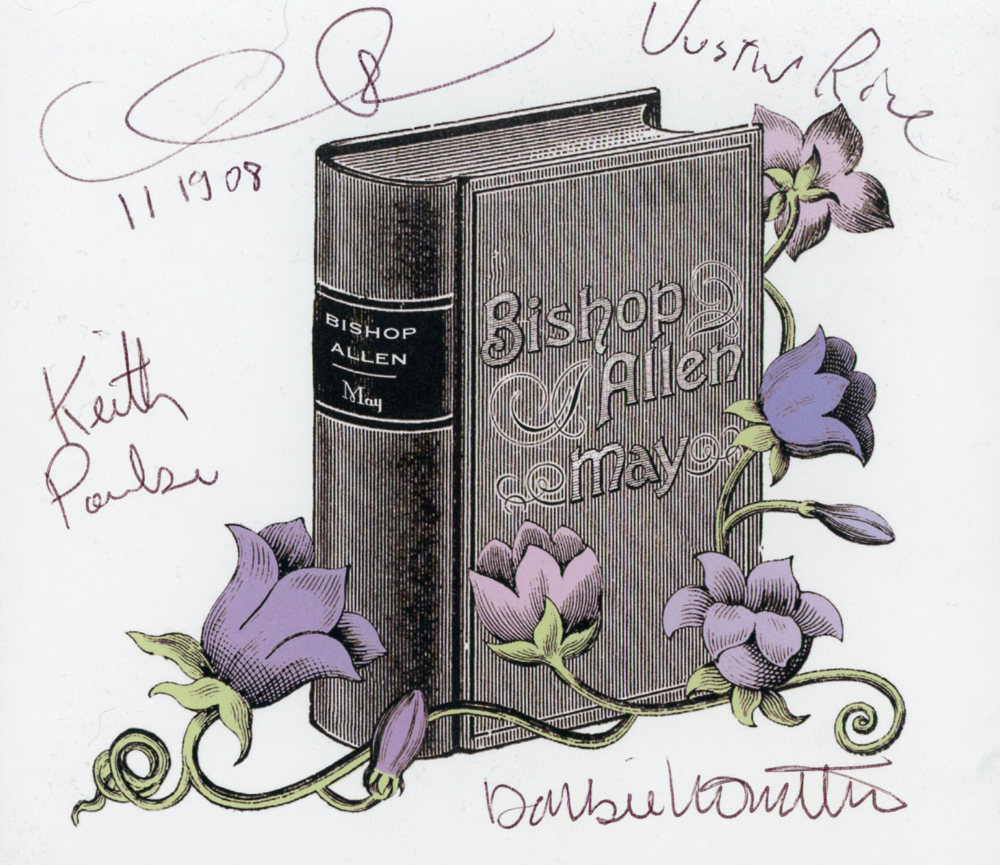 Justin Rice
11 19 08
BISHOP
ALLEN
May
Bishop
Allen
May
Keith